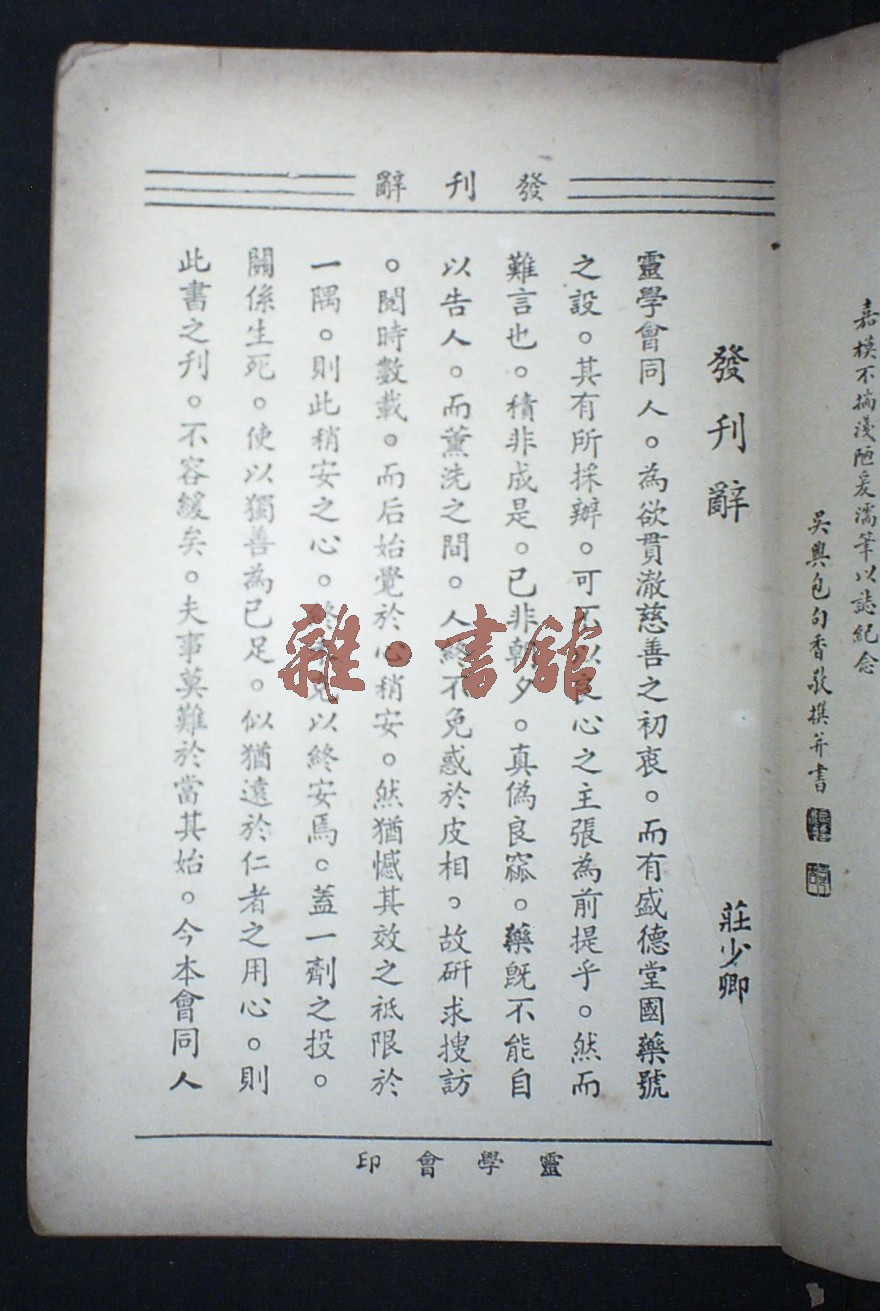 嘉模不揣淺陋爰濡筆以誌紀念
吳興包句香敬撰并書
發刊辭
發刊辭 莊少卿
靈學會同人。為欲貫澈慈善之初衷。而有盛德堂國藥號
之設。其有所採辦。可不以良心之主張為前提乎。然而
難言也。積非成是。已非朝夕。真偽良窳。藥旣不能自
以告人。而薰洗之間。人終不免惑於皮相。故研求搜訪
。閱時數載。而后始覺於心稍安。然猶憾其效之祗限於
一隅。則此稍安之心。終以終安焉。蓋一劑之投。
關係生死。使以獨善為已足。似猶遠於仁者之用心。則
此書之刋。不容緩矣。夫事莫難於當其始。今本會同人
靈學會印
雜·書館